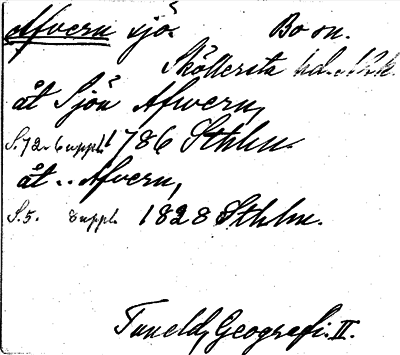 Afvern sjö. Bo sn.
Sköllersta hd. Nke.
åt Sjön Afwern,
S. 72. 6 uppl. 1786 Sthlm.
åt .. Afvern,
S. 5. 8 uppl. 1828 Sthlm.
Tuneld, Geografi. II.